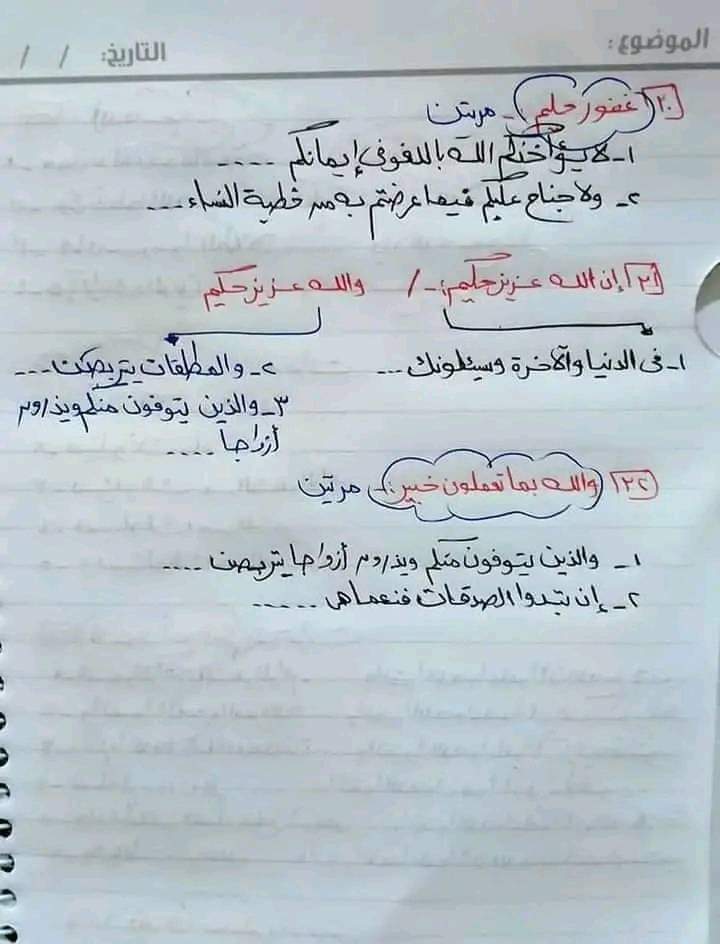 الموضوع: التاريخ: / /
٢٠ (غفور حليم) - مرتين
١- لا يؤاخذكم الله باللغو فى إيمانكم ....
٢- ولا جناح عليكم فيما عرضتم به من خطبة النساء ...
٢١ إن الله عزيز حكيم :- / والله عزيز حكيم
١- فى الدنيا والآخرة ويسئلونك ... ٢- والمطلقات يتربصن ...
٣- والذين يتوفون منكم ويذرون
أزواجا ....
٢٢ (والله بما تعملون خبير) :- مرتين
١- والذين يتوفون منكم ويذرون أزواجا يتربصن ....
٢- إن تبدوا الصدقات فنعما هى .....